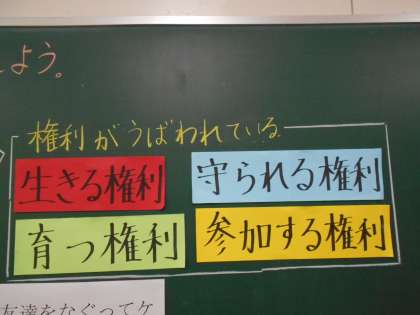 しよう。
権利がうばわれている
生きる権利
守られる権利
育つ権利
参加する権利
友達をなぐってケ